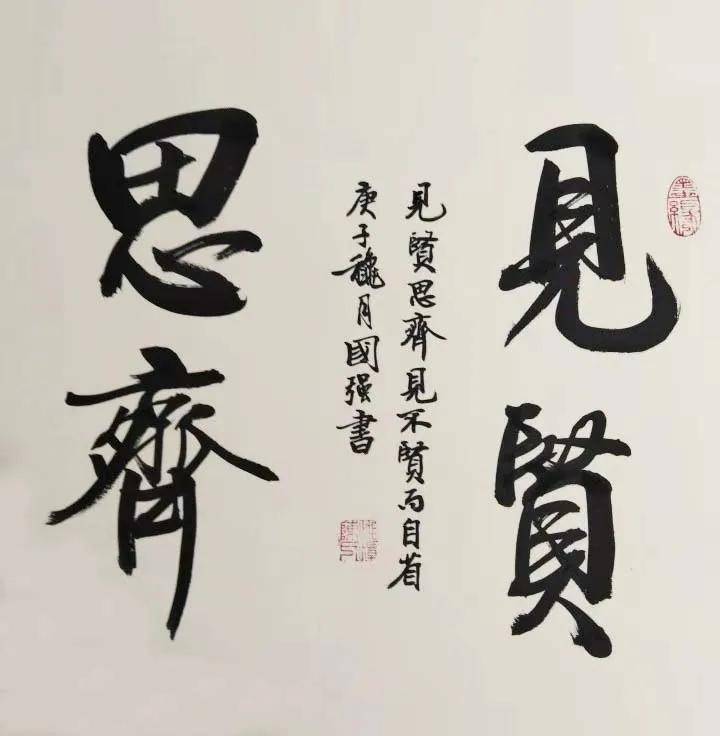 見賢
思齊
見賢思齊見不賢而自省
庚子穐月國強書